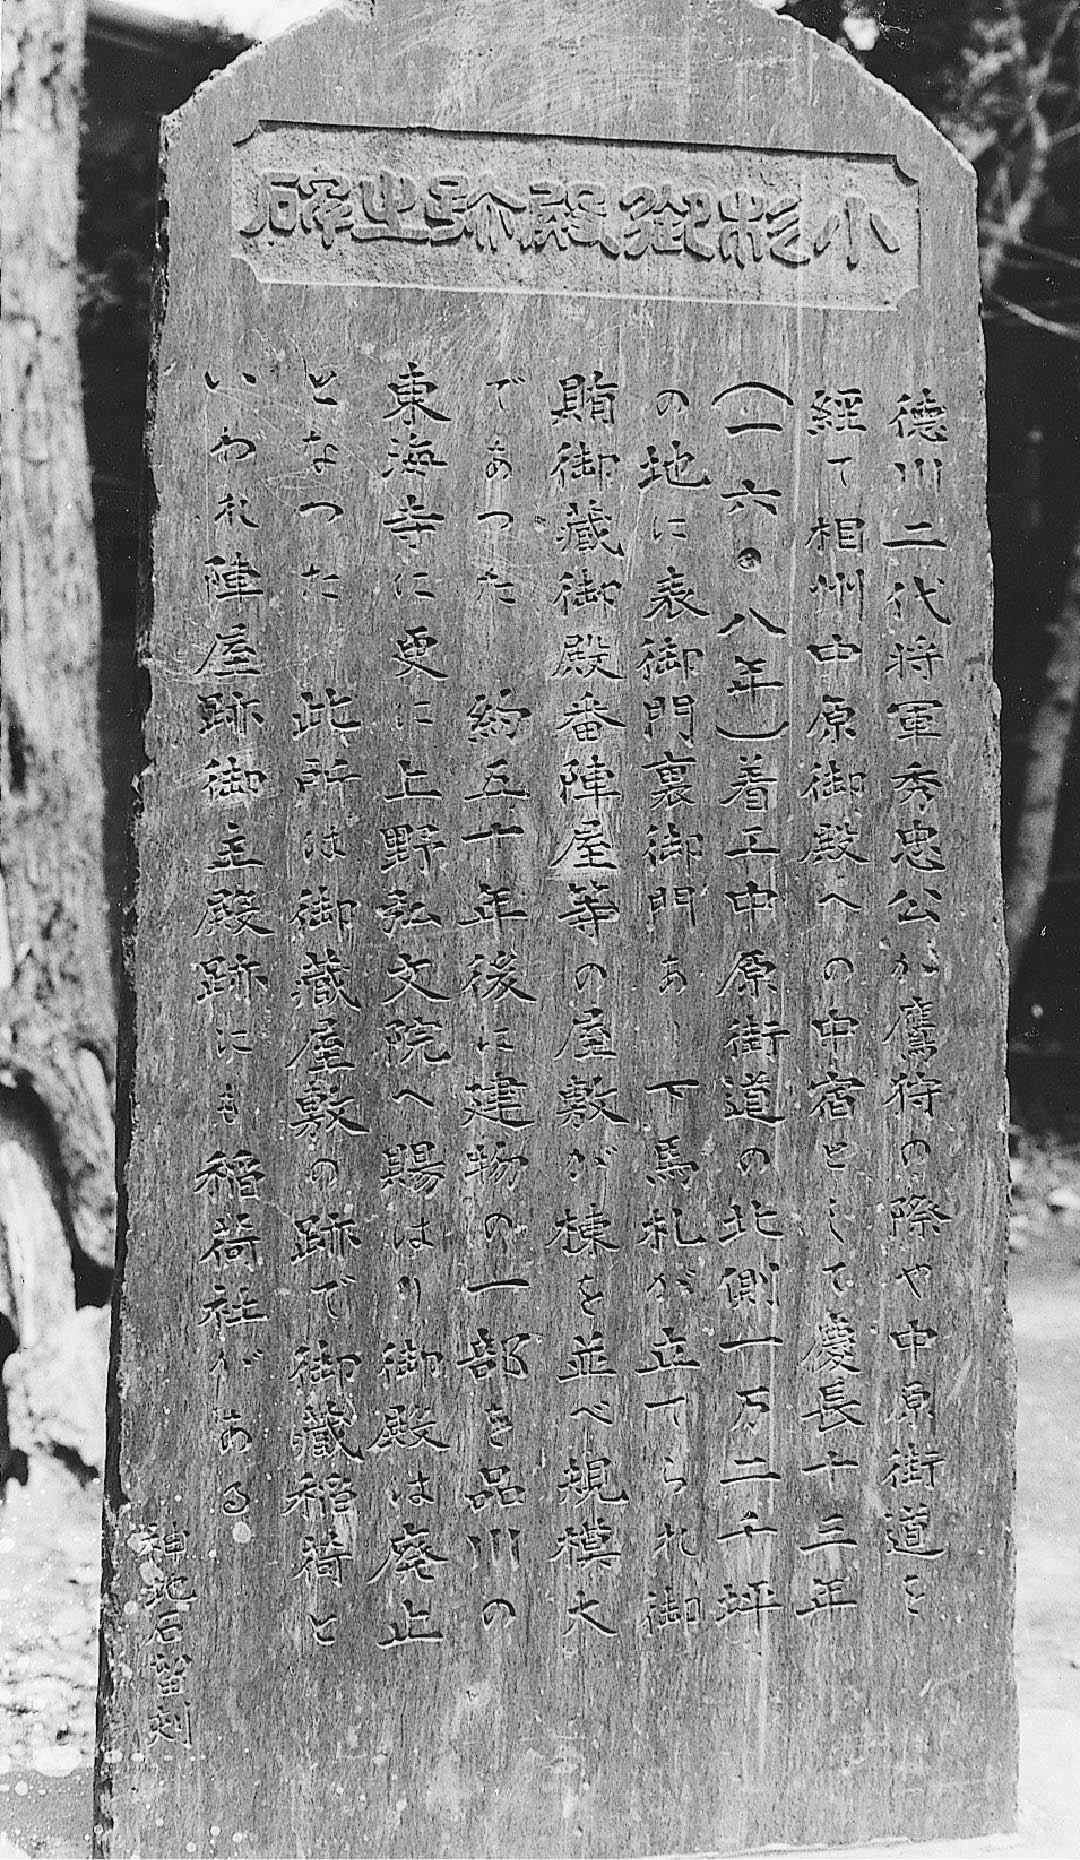 小杉御殿跡之碑
徳川二代将軍秀忠公が鷹狩の際や中原街道を
経て相州中原御殿への中宿として慶長十三年
(一六〇八年)着工中原街道の北側一万二千坪
の地に表御門裏御門あり 下馬札が立てられ御
賄御蔵御殿番陣屋等の屋敷が棟を並べ規模大
であつた 約五十年後に建物の一部を品川の
東海寺に更に上野弘文院へ賜はり御殿は廃止
となつた 此所は御蔵屋敷の跡で御蔵稲荷と
いわれ陣屋跡御主殿跡にも稲荷社がある
神地石留刻